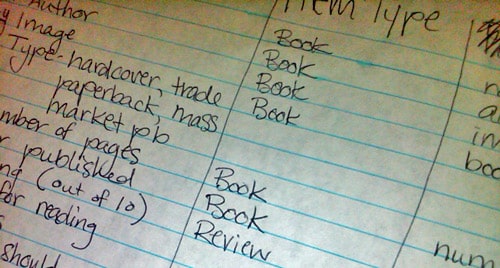 Author
Item Type
Image
Book
Type-hardcover, trade
Book
paperback, mass
Book
market pb
Book
mber of pages
published
Book
(out of 10)
Book
for reading
Review
num
should